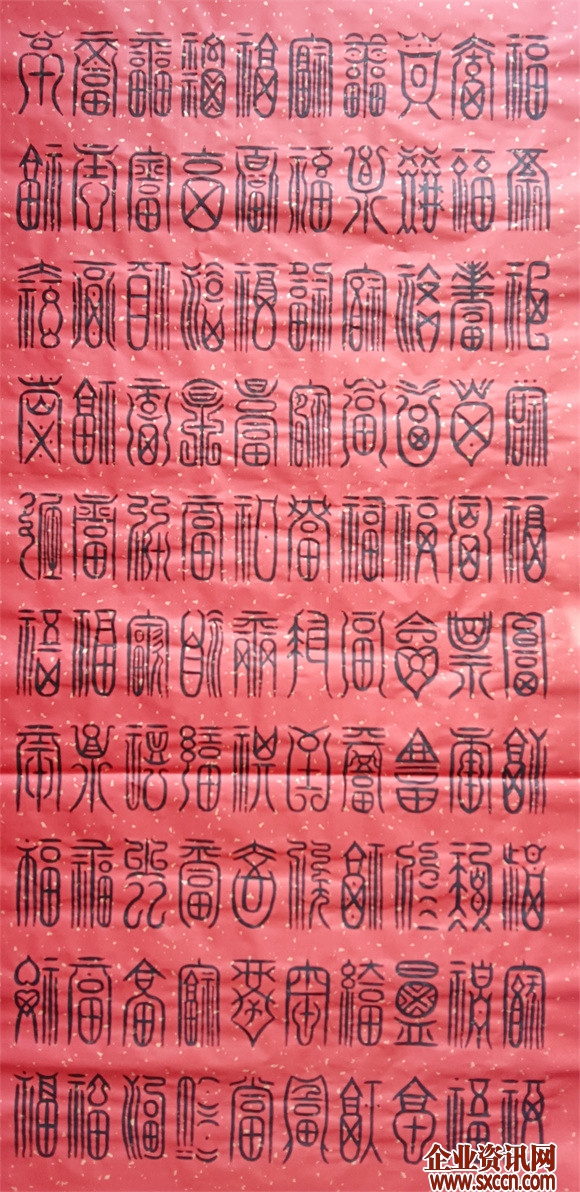 福福福福福福福福福福
福福福福福福福福福福
福福福福福福福福福福
福福福福福福福福福福
福福福福福福福福福福
福福福福福福福福福福
福福福福福福福福福福
福福福福福福福福福福
福福福福福福福福福福
福福福福福福福福福福
企业资讯网
www.sxccn.com